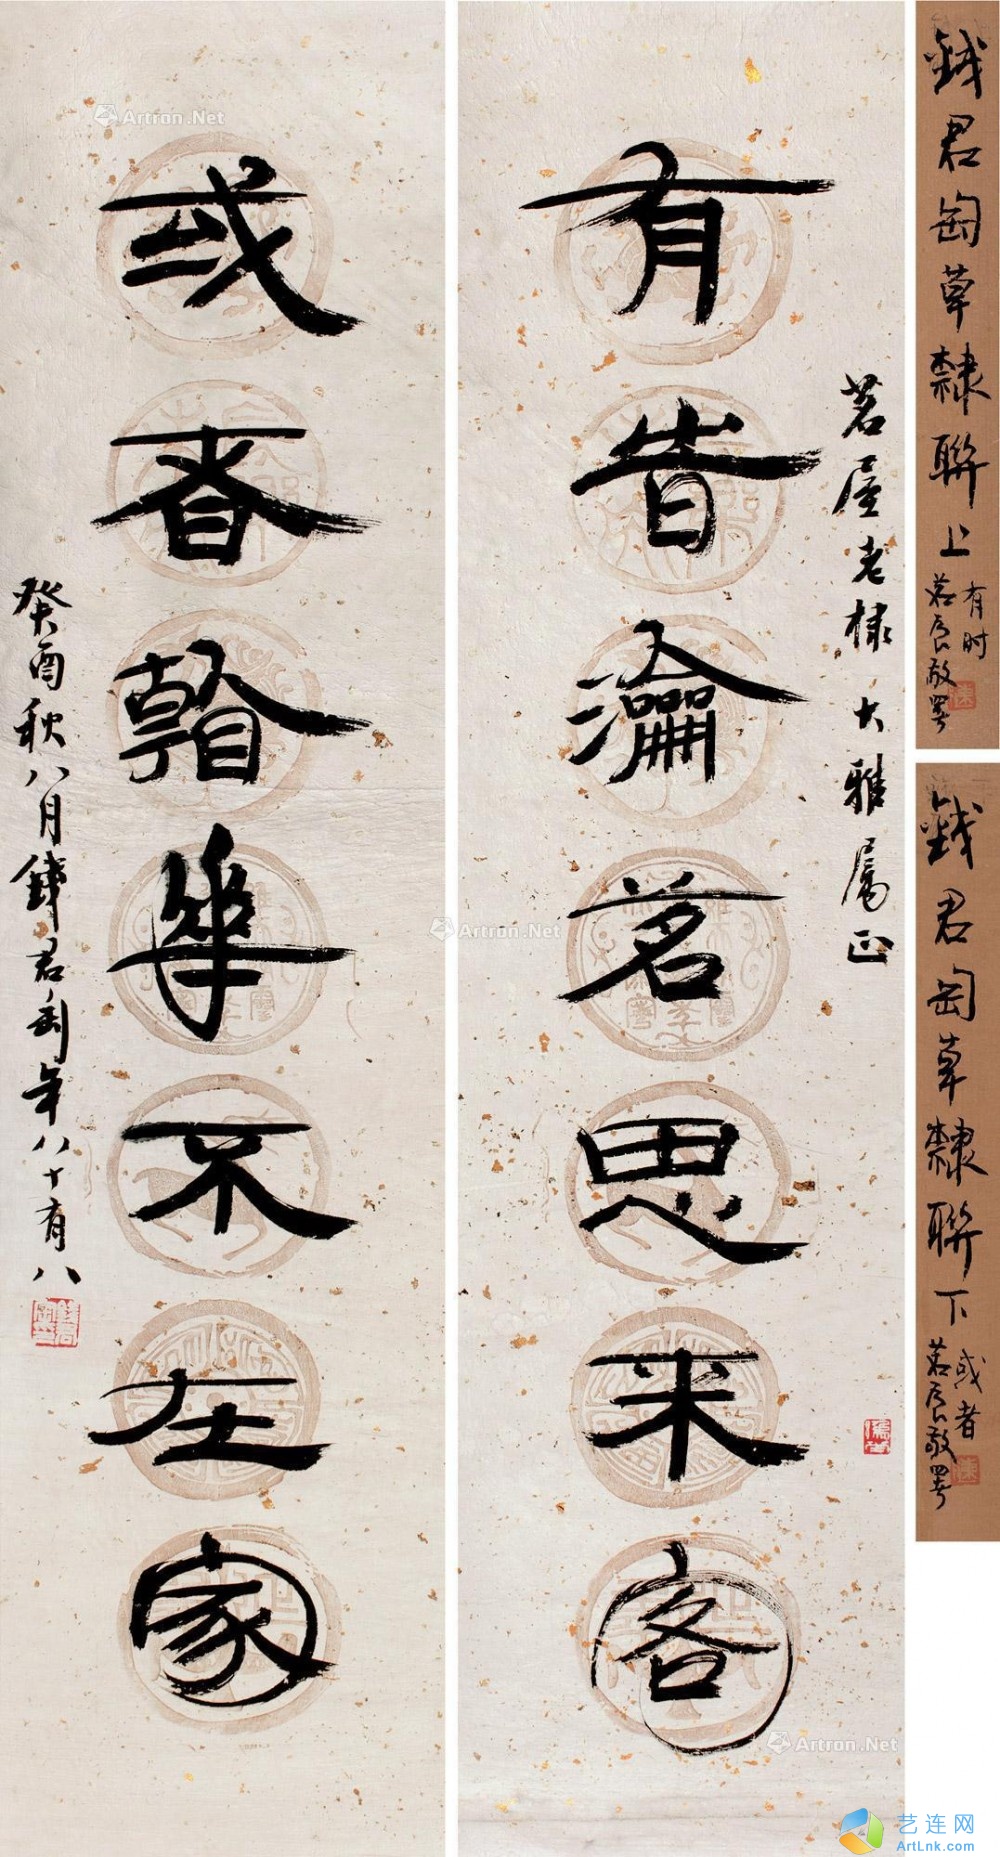 錢君匋草隸聯上
有时
茗屋敬署
錢君匋草隸聯下
或者
茗屋敬署
茗屋老棣大雅属正
有旹瀹茗思来客
或者看華不在家
癸酉秋八月錢君匋年八十有八
Artron.Net
Artron.Net
Artron.Net
艺连网
ArtLnk.com